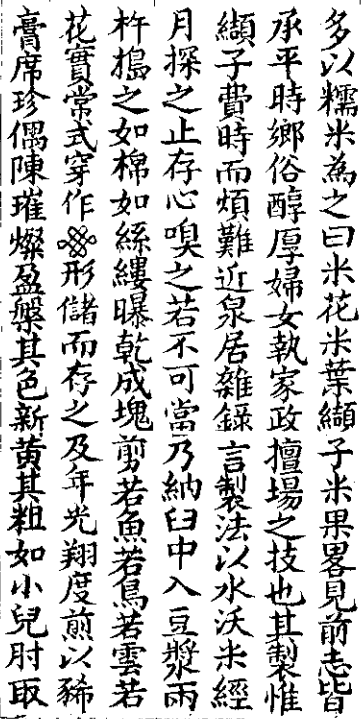 多以糯米為之曰米花米葉纈子米果畧見前志皆
承平時鄉俗醇厚婦女執家政擅場之技也其製惟
纈子費時而煩難近泉居雜錄言製法以水沃米經
月探之止存心嗅之若不可當乃納臼中入豆漿兩
杵搗之如棉如絲縷曝乾成塊剪若魚若鳥若雲若
花實常式穿作形儲而存之及年光翔度煎以豨
膏席珍偶陳璀燦盈盤其色新黃其粗如小兒肘取